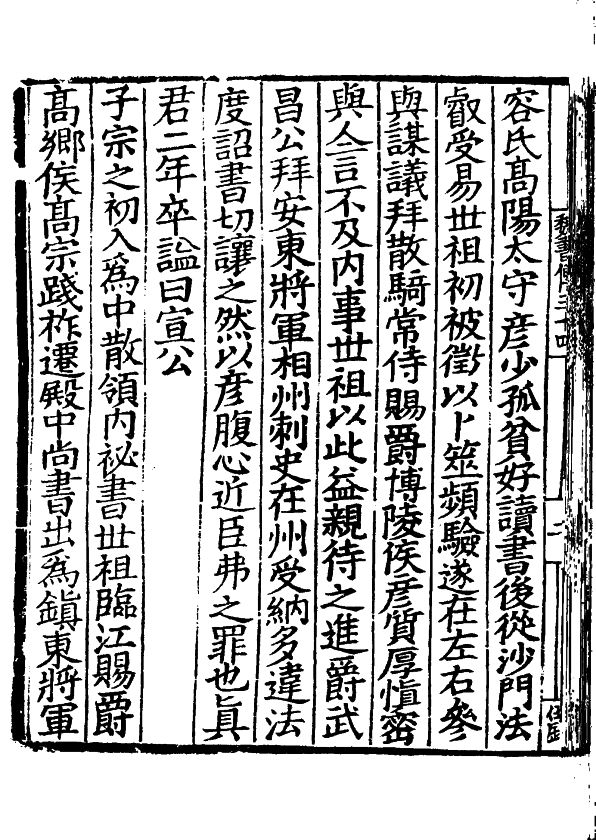 容氏髙陽太守彦少孤貧好讀書後從沙門法
叡受易世祖初被徴以卜筮頻驗遂在左右參
與謀議拜散騎常侍賜爵博陵侯彦質厚慎密
與人言不及内事世祖以此益親待之進爵武
昌公拜安東將軍相州刺史在州受納多違法
度詔書切讓之然以彦腹心近臣弗之罪也真
君二年卒謚曰宣公
子宗之初入爲中散領内祕書世祖臨江賜爵
髙鄉侯髙宗踐祚遷殿中尚書出爲鎮東將軍
魏書傳三十四